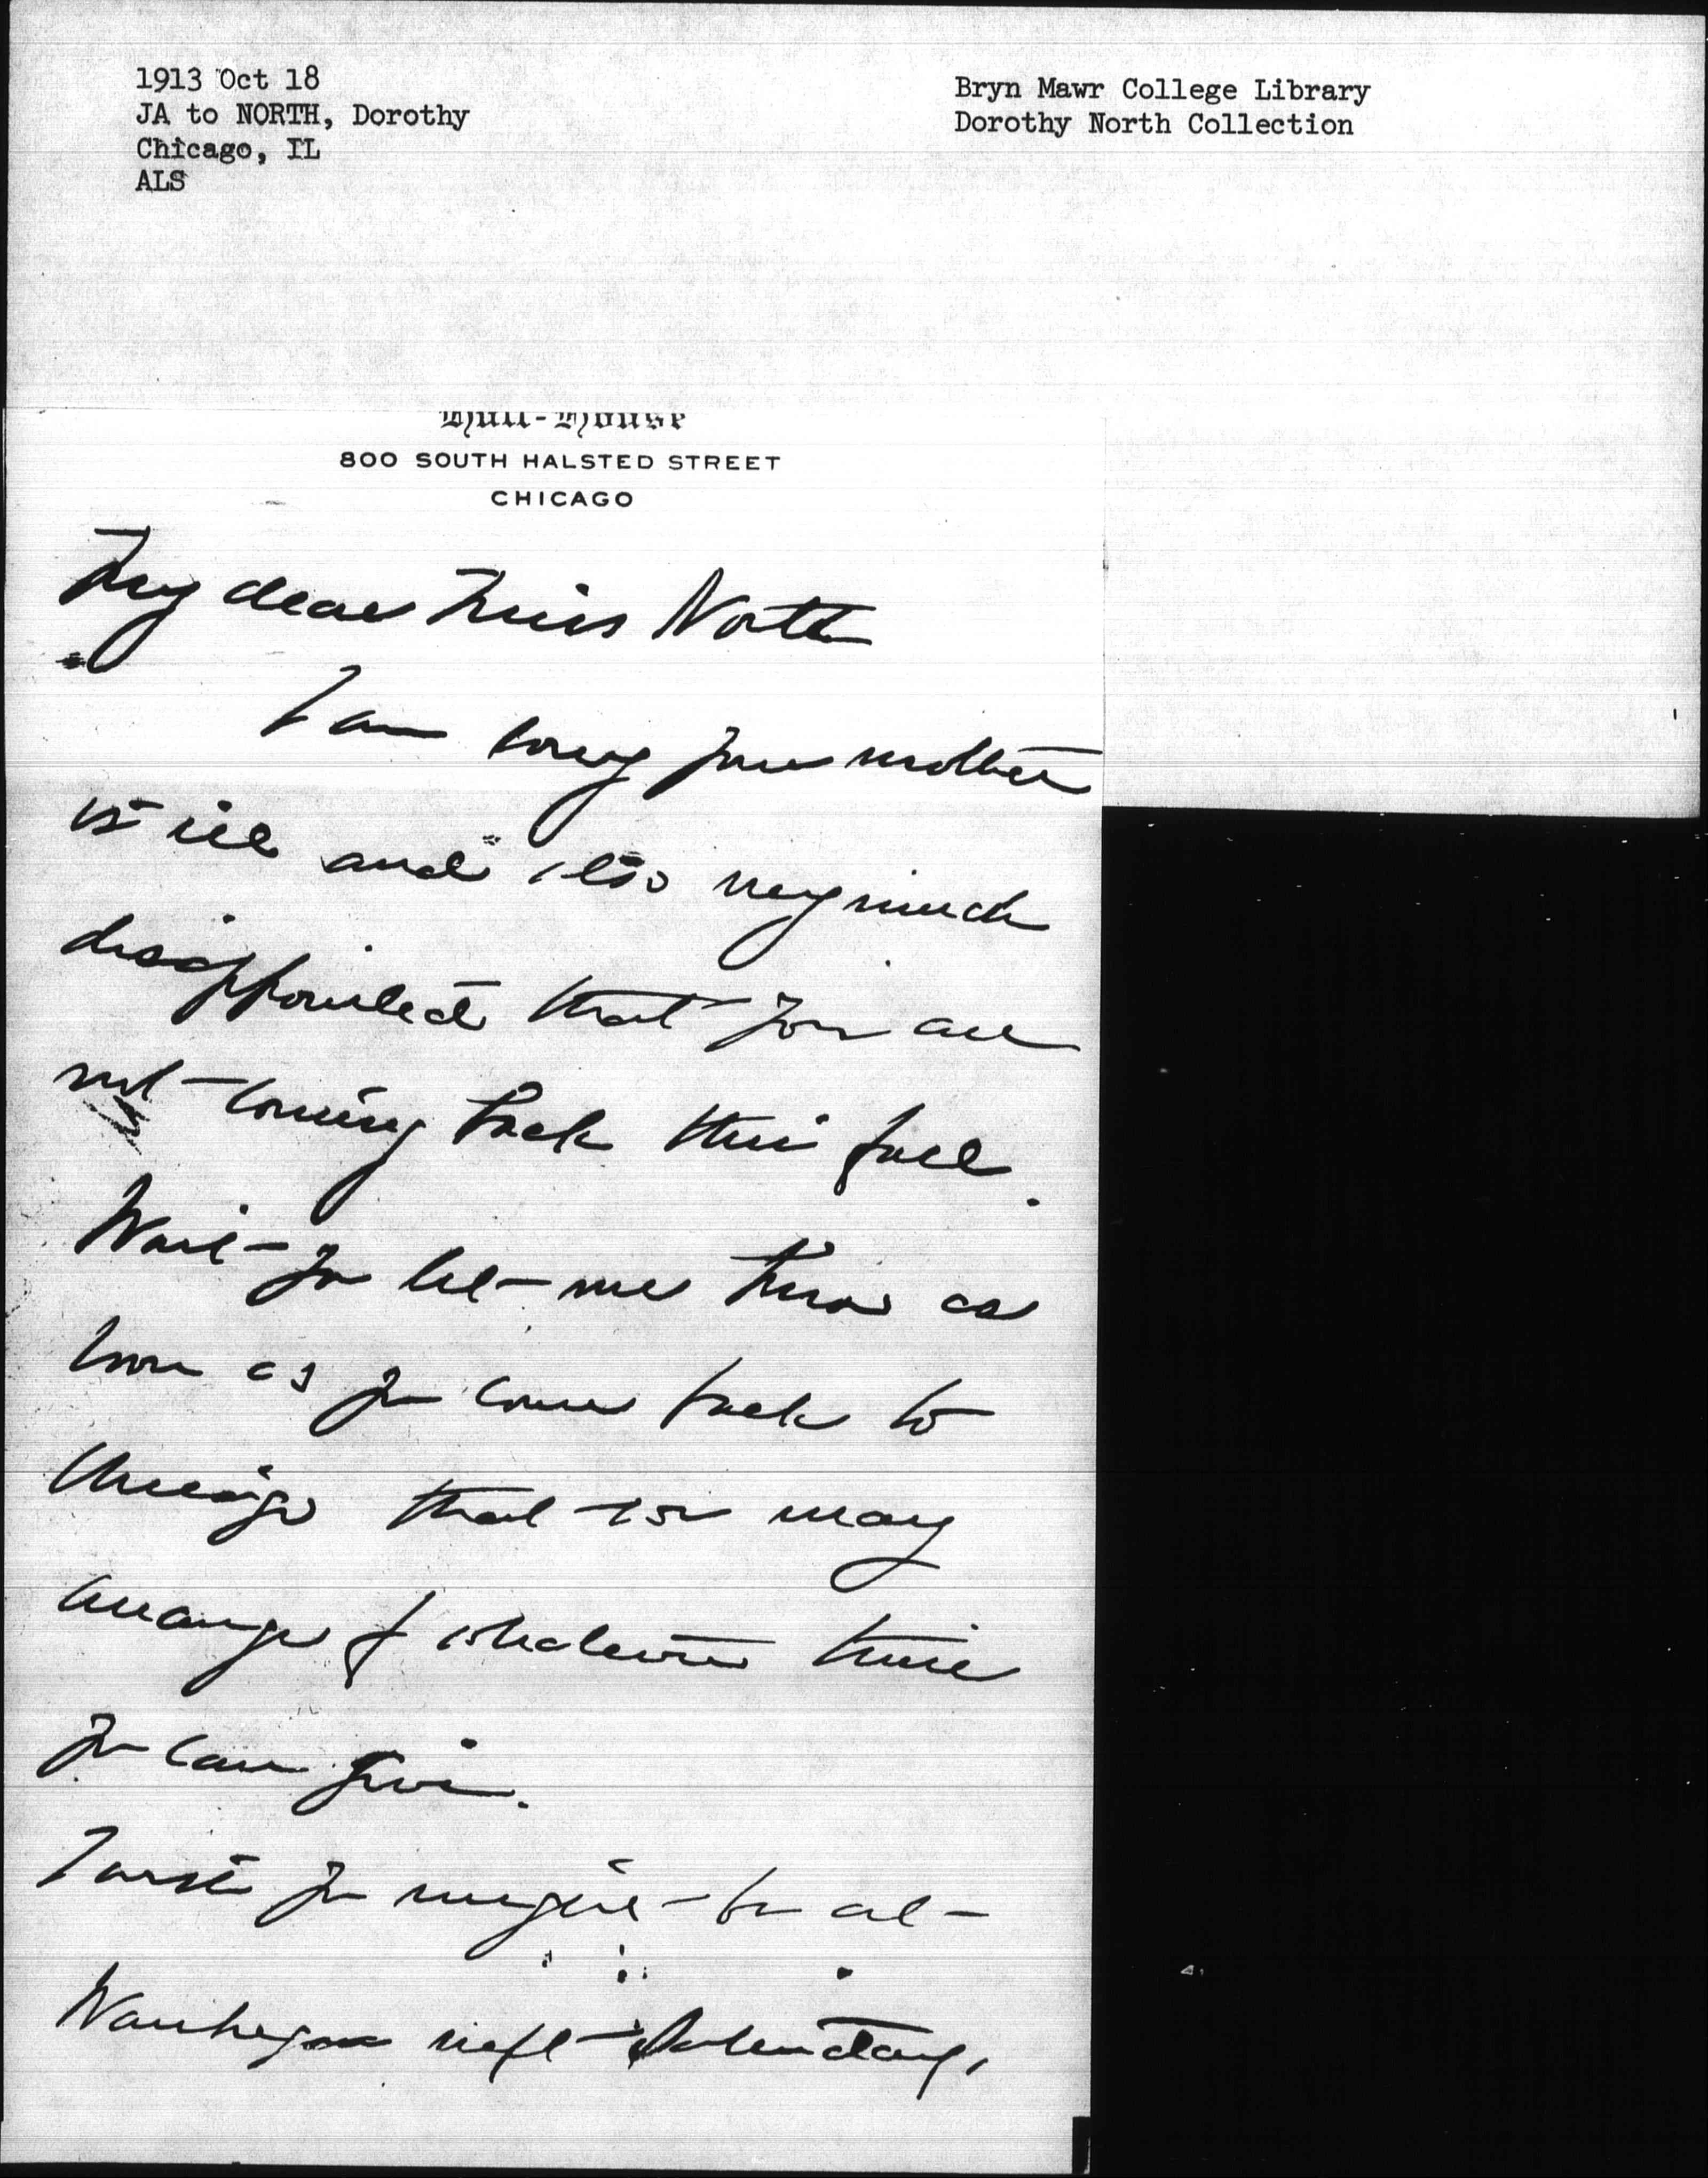 1913 Oct 18
JA to NORTH, Dorothy
Chicago, IL
ALS
Bryn Mawr College Library
Dorothy North Collection
Hull-House
800 SOUTH HALSTED STREET
CHICAGO
My dear Miss North
I am sorry your mother
is ill and also very much
disappointed that you are
not coming back this fall.
Won't you let me know as
soon as you come back to
Chicago that we may
arrange for whatever time
you can give.
I wish you might be at
Waukegan next Saturday,